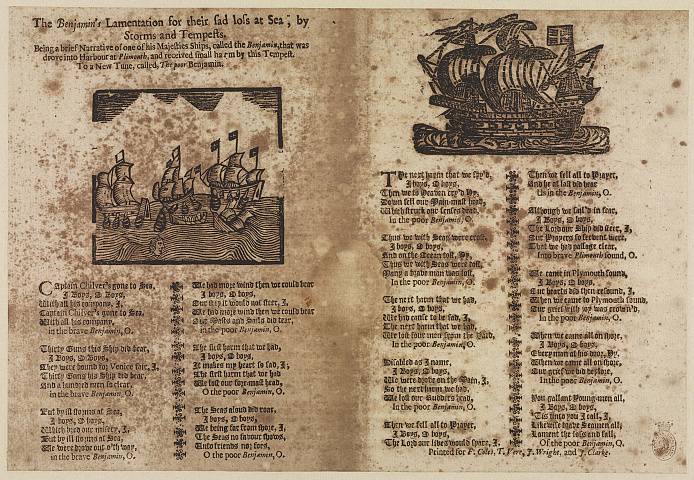 The Benjamin's Lamentation for their sad loss at Sea, by
Storms and Tempests,
Being a brief Narrative of one of his Majesties Ships, called the Benjamin, that was
drove into Harbour at Plimouth, and received small harm by this Tempest.
To a New Tune, called, The poor Benjamin.
Captain Chilver's gone to Sea,
I Boys, O Boys,
With all his company, I,
Captain Chilver's gone to Sea,
With all his company,
in the brave Benjamin, O.
Thirty Guns this Ship did bear,
I Boys, O Boys,
They were bound for Venice fair, I,
Thirty Guns this Ship did bear,
And a hundred men so clear,
in the brave Benjamin, O.
But by ill storms at Sea,
I boys, O boys,
Which bred our misery, I,
But by ill storms at Sea,
We were drove out o'th way,
in the brave Benjamin, O.
We had more wind then we could bear
I boys, O boys,
Our ship it would not steer, I,
We had more wind then we could bear
Our Masts and Sails did tear,
in the poor Benjamin, O.
The first harm that we had,
I boys, O boys,
It makes my heart so sad, I,
The first harm that we had
We lost our fore-mast head,
O the poor Benjamin, O.
The Seas aloud did roar,
I boys, O boys,
We being far from shore, I,
The Seas no favour shows,
Unto friends nor foes,
O the poor Benjamin, O.
The next harm that we spy'd,
I boys, O boys,
Then we to Heaven cry'd, I,
Down fell our Main-mast head,
Which struck our senses dead,
In the poor Benjamin, O.
Thus we with Seas were crost,
I boys, O boys,
And on the Ocean tost, I,
Thus we with Seas were tost,
Many a brave man was lost,
In the poor Benjamin, O.
The next harm that we had,
I boys, O boys,
We had cause to be sad, I,
The next harm that we had,
We lost four men from the Yard,
In the poor Benjamin, O.
Disabled as I name,
I boys, O boys,
We were drove on the Main, I,
So the next harm we had,
We lost our Rudders head,
In the poor Benjamin, O.
Then we fell all to Prayer,
I Boys, O boys,
The Lord our lives would spare, I,
Then we fell all to Prayer,
And he at last did hear
Us in the Benjamin, O.
Although we sail'd in fear,
I Boys, O Boys,
The Lord our Ship did steer, I,
Our Prayers so fervent were,
That we had passage clear,
Into brave Plimouth sound, O.
We came in Plymouth sound,
I boys, O boys,
Our hearts did then resound, I,
When we came to Plymouth sound,
Our grief with joy was crown'd,
In the poor Benjamin, O.
When we came all on shore,
I boys, O boys,
Every man at his door, I,
When we came all on shore,
Our grief we did deplore,
In the poor Benjamin, O.
You gallant Young-men all,
I Boys, O boys,
'Tis unto you I call, I,
Likewise brave Seamen all,
Lament the loss and fall,
Of the poor Benjamin, O.
Printed for F. Coles, T. Vere, J. Wright, and J. Clarke.